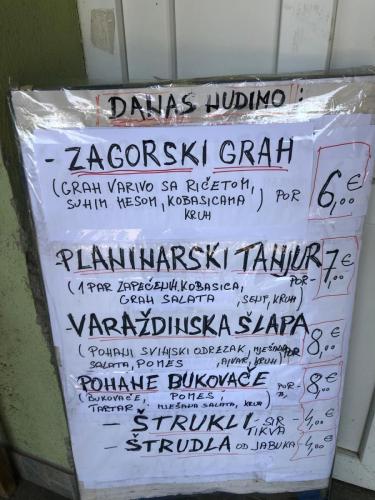 DANAS NUDIMO :
- ZAGORSKI GRAH
(GRAH VARIVO SA RIČETOM, POR 6,00 €
SUHIM MESOM, KOBASICAMA )
KRUH
- PLANINARSKI TANJUR 7,00 €
(1 PAR ZAPEČENIH KOBASICA, POR-
GRAH SALATA , SENF, KRUH)
- VARAŽDINSKA ŠLAPA 8,00 €
(POHANI SVINJSKI ODREZAK, MJEŠANA POR
SALATA, POMES , AJVAR, KRUH)
POHANE BUKOVAČE POR- 8,00 €
(BUKOVAČE, POMES ,
TARTAR MJEŠANA SALATA, KRUH
- ŠTRUKLI - SIR 4,00 €
TIKVA
- ŠTRUDLA OD JABUKA - 4,00 €